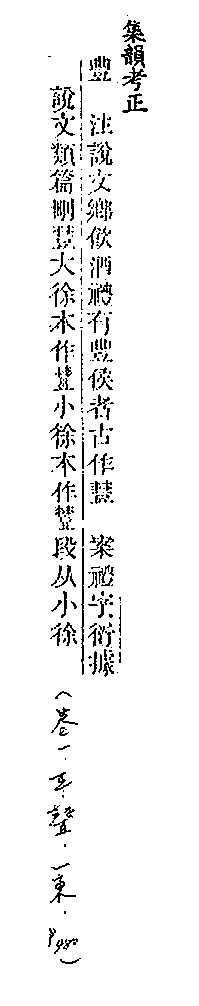 集韻考正
豐 注說文鄉飲酒禮有豐侯者古作𧯮 案禮字衍據
說文類篇刪豐大徐本作𧯮小徐本作𧯮段从小徐
(卷一.平聲.一東.P980)